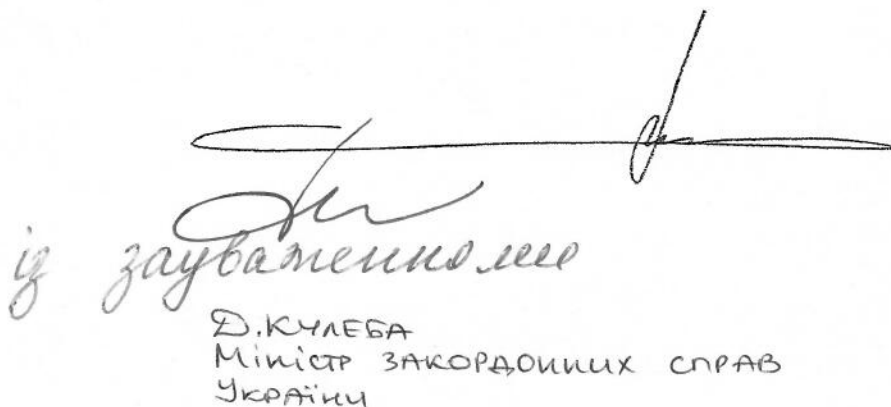 із зауваженнями
Д. КУЛЕБА
Міністр ЗАКОРДОННИХ СПРАВ
УКРАЇНИ